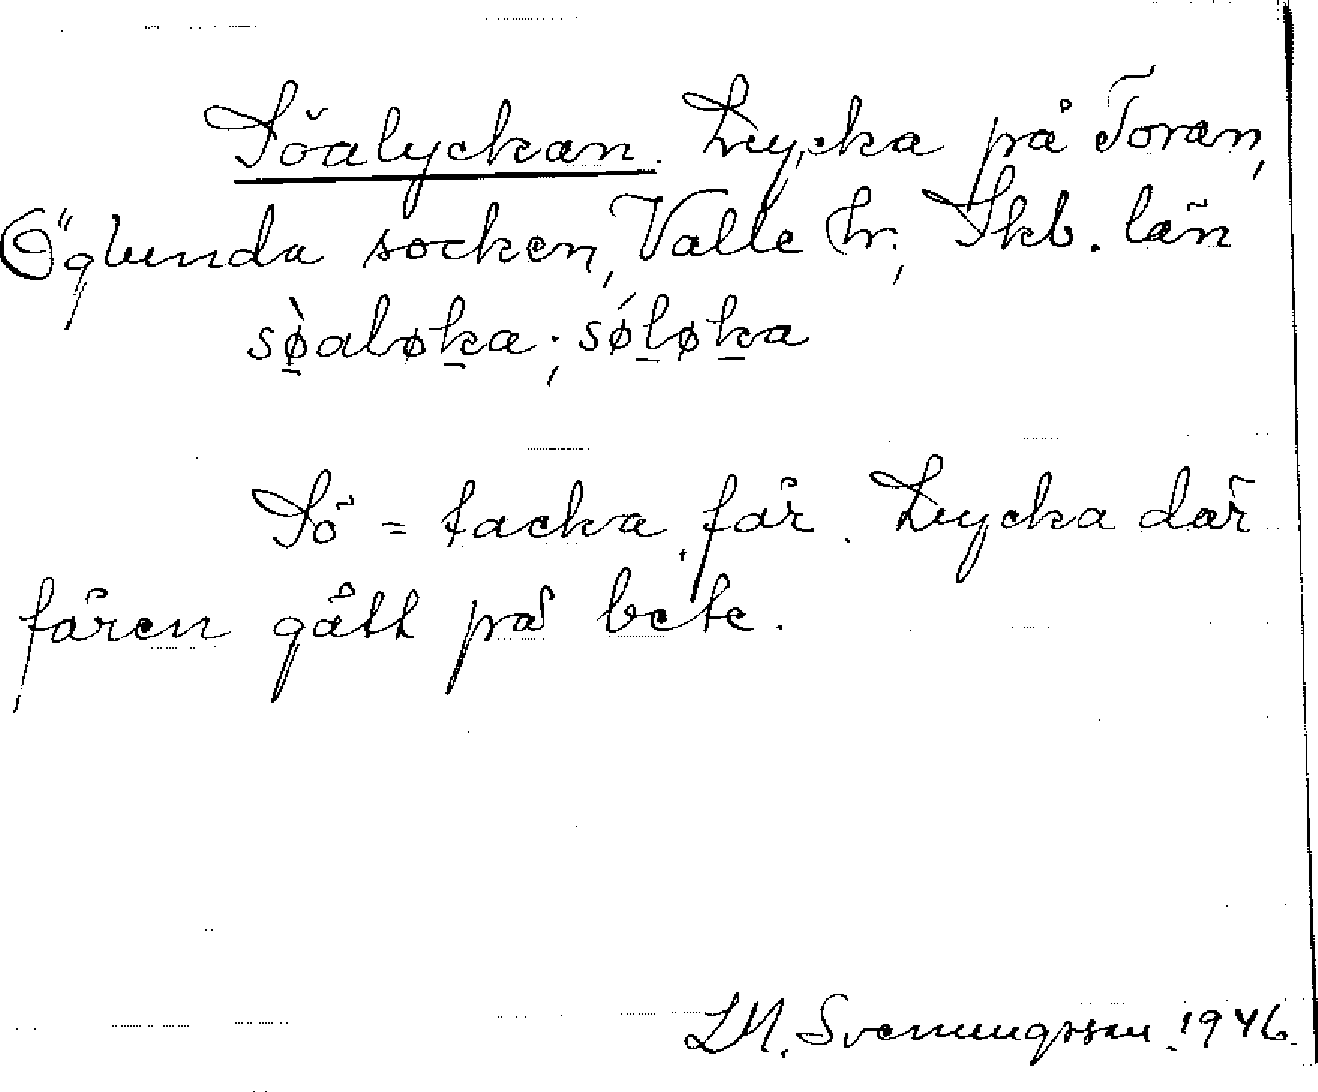 Söalyckan. Lycka på Toran,
Öglunda socken, Valle hr., Skb. län
sø̱̀aløḵa; sǿḻøḵa
Sö = tacka, får. Lycka där
fåren gått på bete.
LM. Svenungsson. 1946.